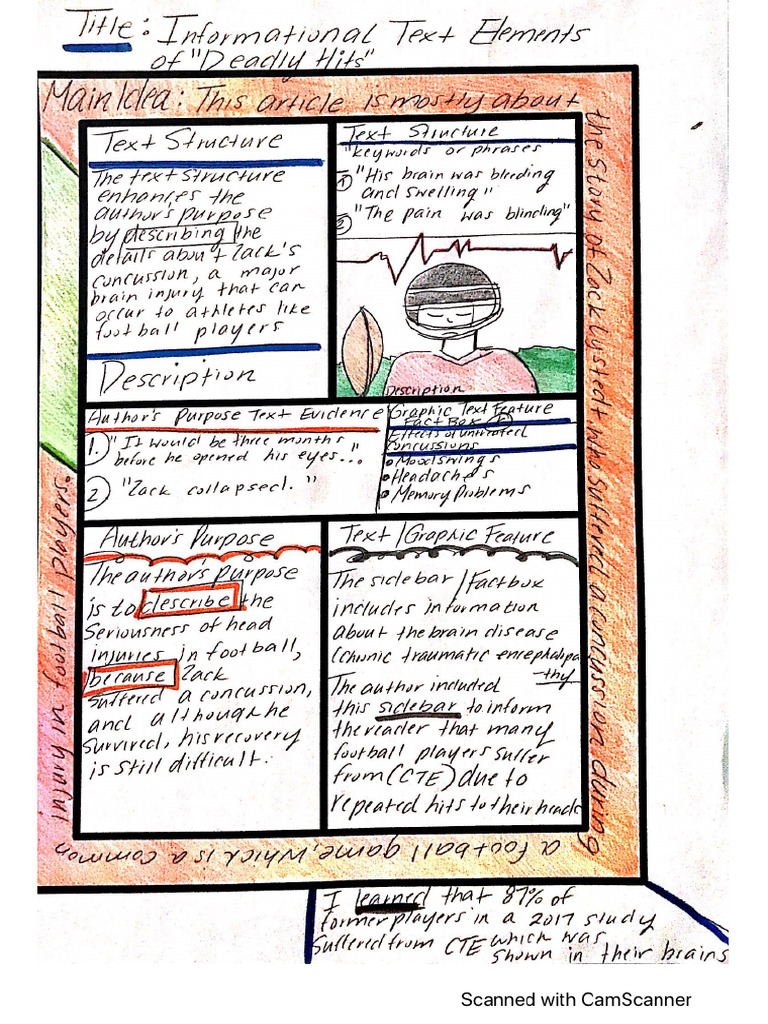 Title: Informational Text Elements
of "Deadly Hits"
Main Idea: This article is mostly about
the story of Zack Lystedt who suffered a concussion during
a football game, which is a common
injury in football players.
Text Structure
The text structure
enhances the
author's purpose
by describing the
details about Zack's
concussion, a major
brain injury that can
occur to athletes like
football players
Description
Text Structure
"keywords or phrases
1 "His brain was bleeding
and swelling"
2 "The pain was blinding"
Description
Author's Purpose Text Evidence
1. "It would be three months
before he opened his eyes..."
2 "Zack collapsed."
Graphic Text Feature
Fact Box
Effects of untreated
concussions
• Moodswings
• Headaches
• Memory Problems
Author's Purpose
The author's purpose
is to describe the
seriousness of head
injuries in football,
because Zack
suffered a concussion,
and although he
survived, his recovery
is still difficult.
Text/Graphic Feature
The sidebar/Factbox
includes information
about the brain disease
(chonic traumatic encephalopa
thy
The author included
this sidebar to inform
the reader that many
football players suffer
from (CTE) due to
repeated hits to their heads
I learned that 87% of
former players in a 2017 study
suffered from CTE which was
shown in their brains
Scanned with CamScanner